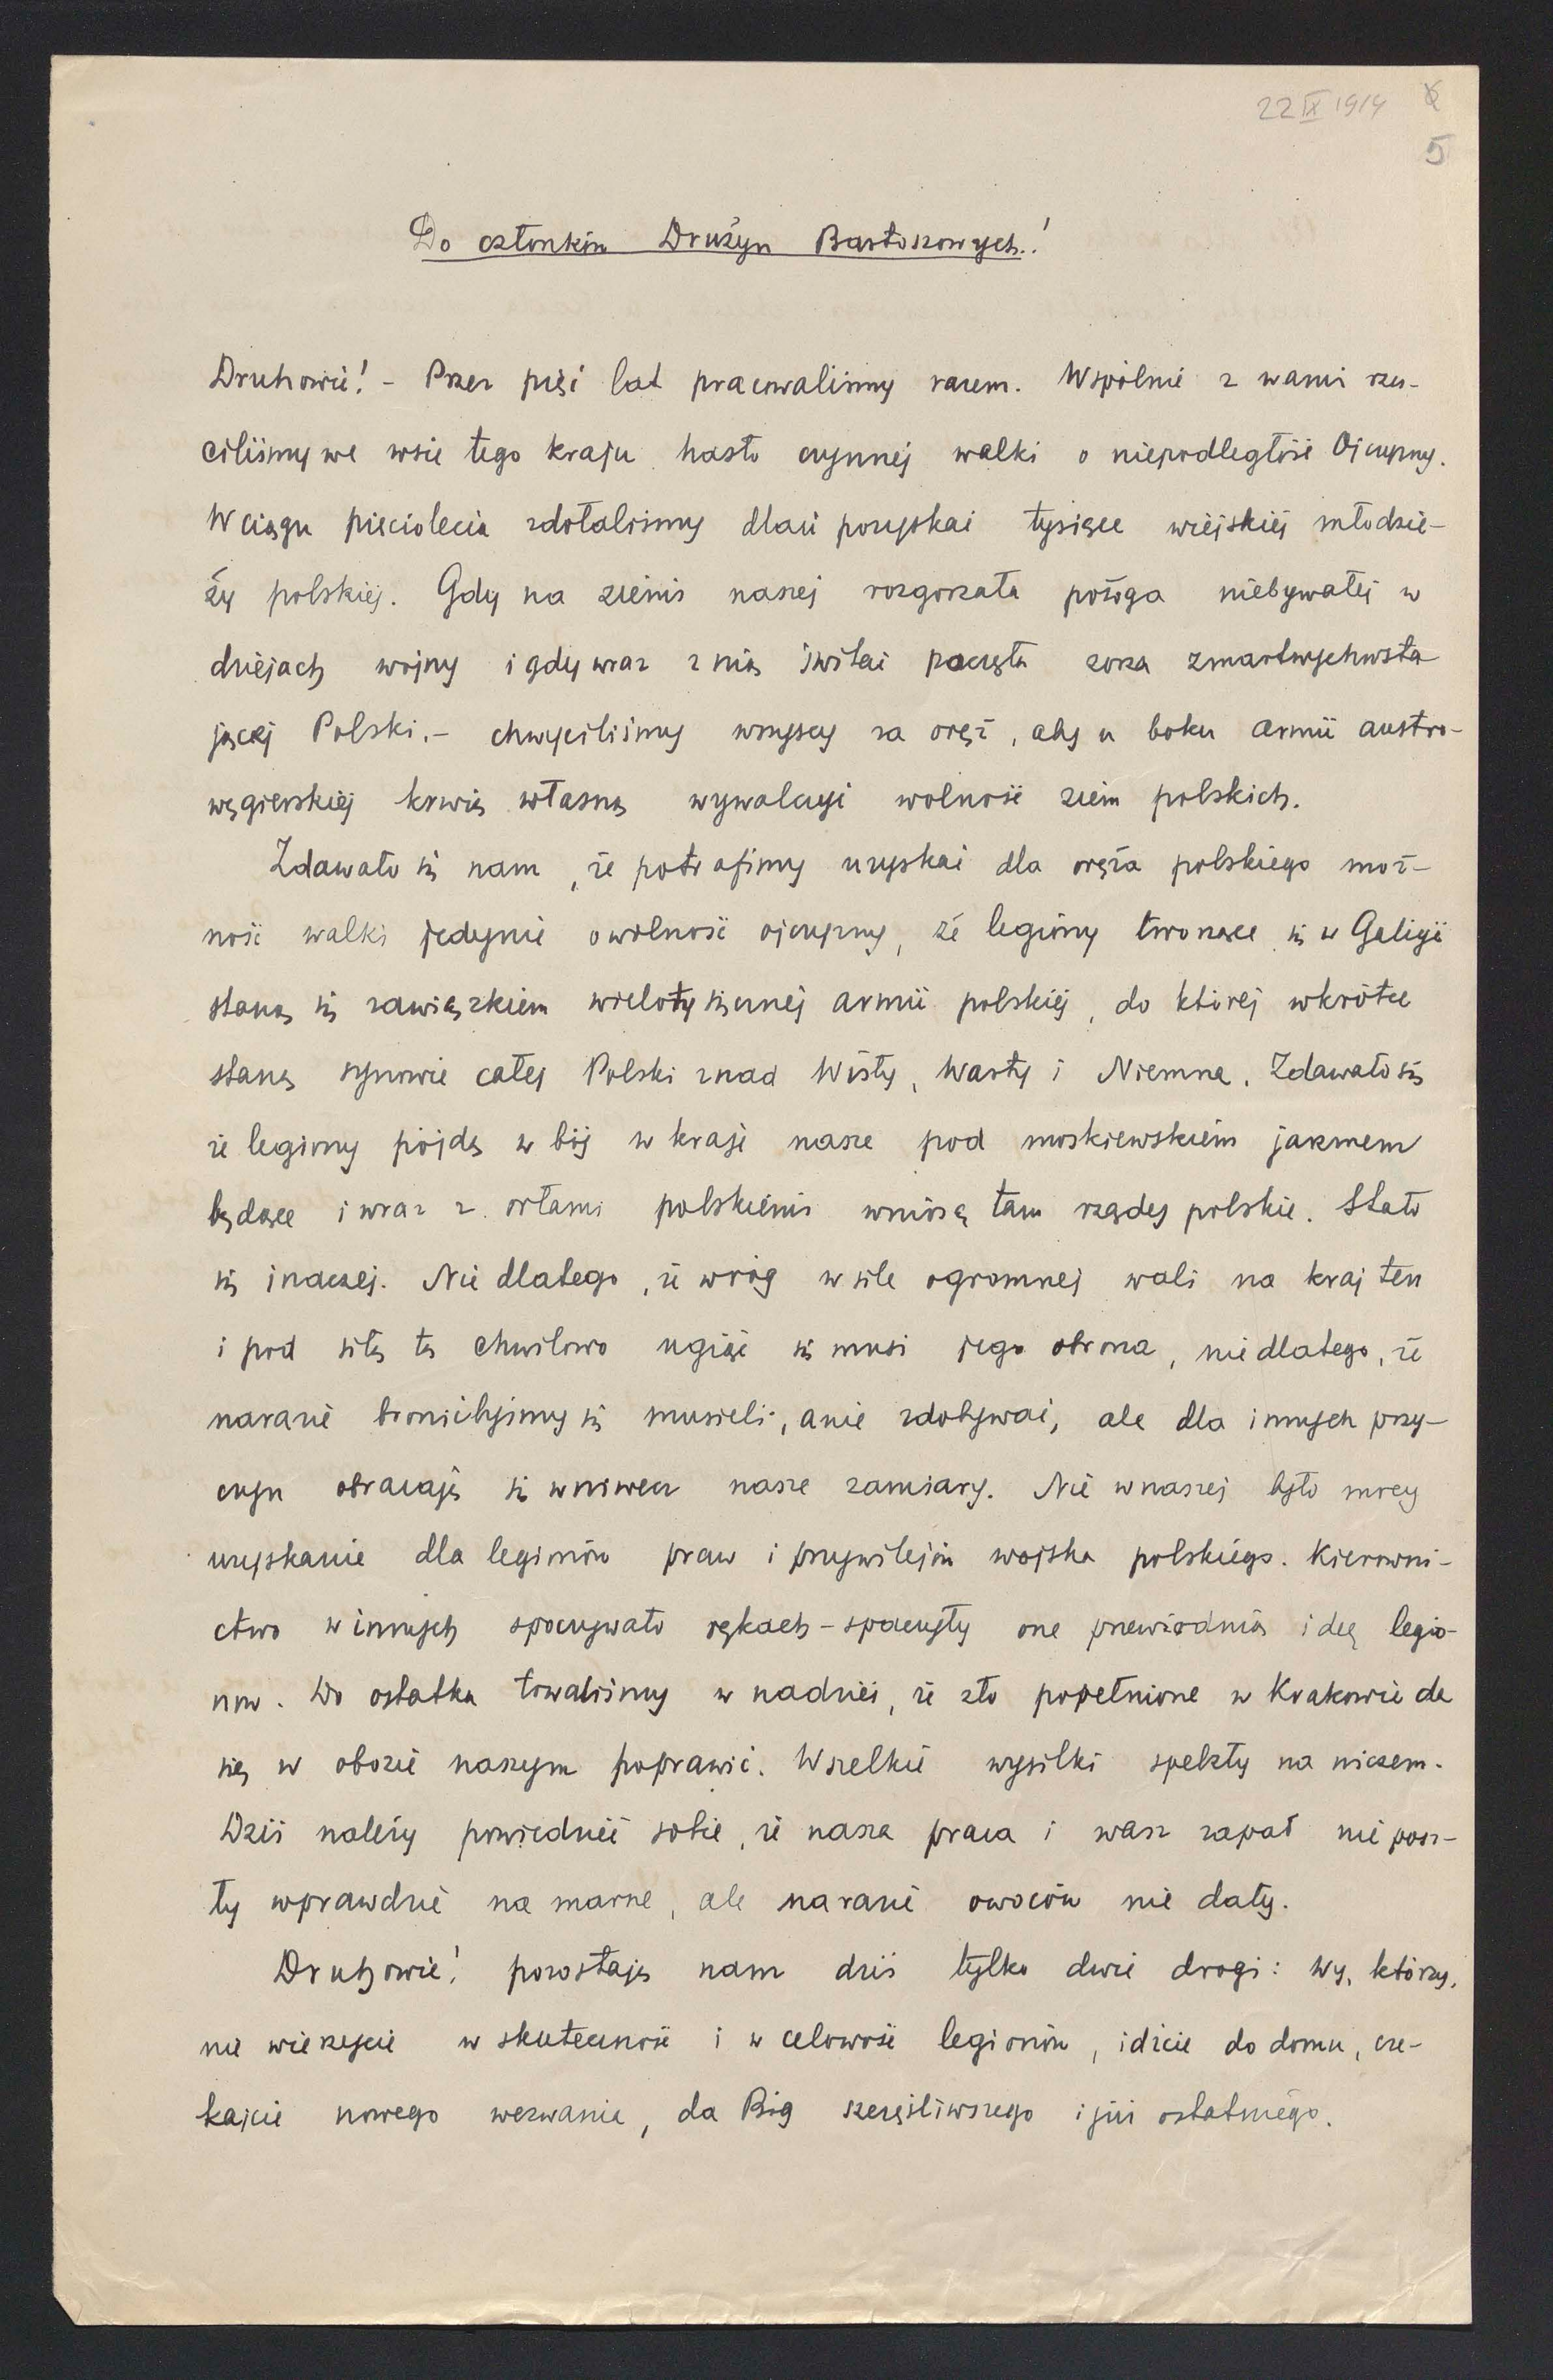 22 IX 1914
5
Do członków Drużyn Bartoszowych!
Druhowie! - Przez pięć lat pracowaliśmy razem. Wspólnie z wami rzu-
ciliśmy we wsie tego kraju hasło czynnej walki o niepodległość Ojczyzny.
W ciągu pięciolecia zdołaliśmy dlań pozyskać tysiące wiejskiej młodzie-
ży polskiej. Gdy na ziemi naszej rozgorzała pożoga niebywałej w
dziejach wojny i gdy wraz z nią świtać poczęła zorza zmartwychwsta
jącej Polski.- chwyciliśmy wszyscy za oręż, aby u boku armii austro-
węgierskiej krwią własną wywalczyć wolność ziem polskich.
Zdawało się nam, że potrafimy uzyskać dla oręża polskiego moż-
ność walki jedynie o wolność ojczyzny, że legiony tworzące się w Galicji
staną się zawiązkiem wielotysięcznej armii polskiej, do której wkrótce
staną synowie całej Polski znad Wisły, Warty i Niemna. Zdawało się
że legiony pójdą w bój w kraje nasze pod moskiewskiem jarzmem
będące i wraz z orłami polskiemi wniosą tam rządy polskie. Stało
się inaczej. Nie dlatego, że wróg w sile ogromnej wali na kraj ten
i pod siłą tą chwilowo ugiąć się musi jego obrona, nie dlatego, że
narazie bronićbyśmy się musieli, a nie zdobywać, ale dla innych przy-
czyn obracają się wniwecz nasze zamiary. Nie w naszej było mocy
uzyskanie dla legionów praw i przywilejów wojska polskiego. Kierowni-
ctwo w innych spoczywało rękach - spaczyły one przewodnią ideę legio-
now. Do ostatka trwaliśmy w nadziei, że zło popełnione w Krakowie da
się w obozie naszym poprawić. Wszelkie wysilki spełzły na niczem.
Dziś należy powiedzieć sobie, że nasza praca i wasz zapał nie posz-
ły wprawdzie na marne, ale narazie owoców nie dały.
Druhowie! pozostają nam dziś tylko dwie drogi: Wy, którzy,
nie wierzycie w skuteczność i w celowość legionów, idźcie do domu, cze-
kajcie nowego wezwania, da Bóg szczęśliwszego i już ostatniego.